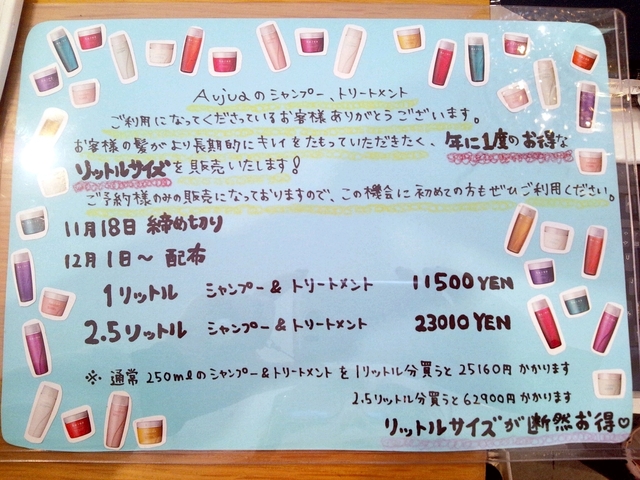 Aujuaのシャンプー、トリートメント
ご利用になってくださっているお客様ありがとうございます。
お客様の髪がより長期的にキレイをたもっていただきたく、年に1度のお得な
リットルサイズを販売いたします!
ご予約様のみの販売になっておりますので、この機会に初めての方もぜひご利用ください。
11月18日 締め切り
12月1日～ 配布
1リットル シャンプー&トリートメント 11500YEN
2.5リットル シャンプー&トリートメント 23010YEN
※ 通常 250mlのシャンプー&トリートメントを1リットル分買うと25160円かかります
2.5リットル分買うと62900円かかります
リットルサイズが断然お得♡